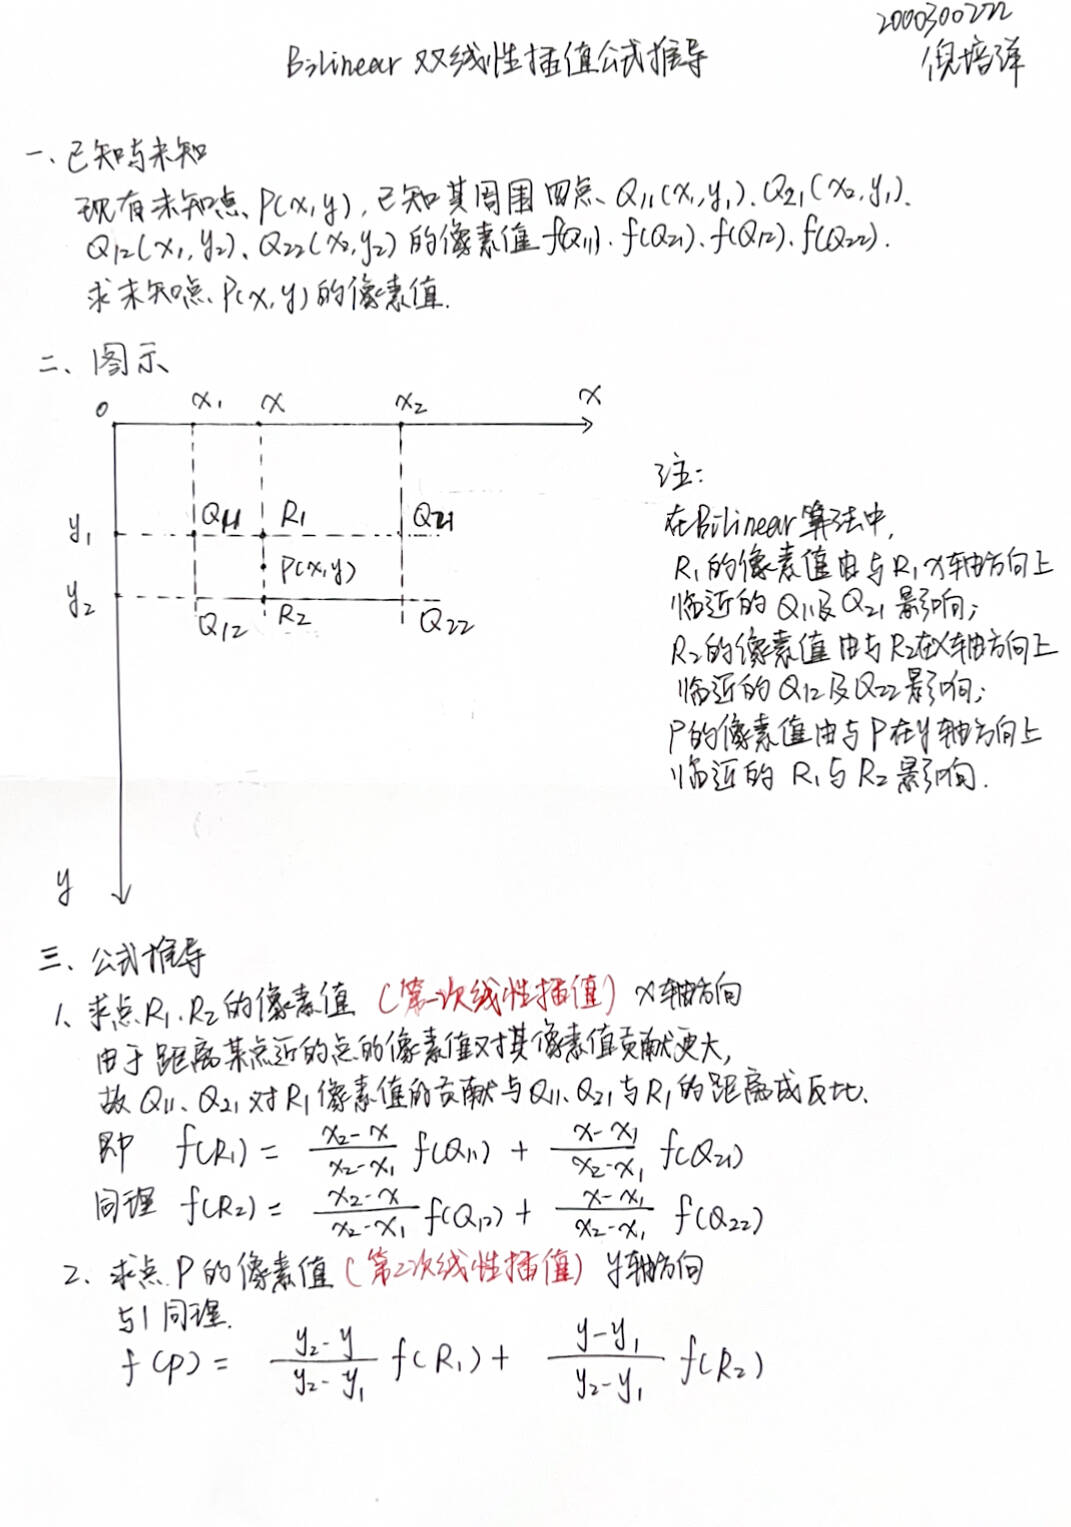 2000300222
倪培洋
Bilinear 双线性插值公式推导
一、已知与未知
现有未知点P(x,y),已知其周围四点、Q11(x1,y1)、Q21(x2,y1)、
Q12(x1,y2)、Q22(x2,y2)的像素值f(Q11)、f(Q21)、f(Q12)、f(Q22).
求未知点P(x,y)的像素值.
二、图示
0 x1 x x2 x
y1 Q11 R1 Q21
P(x,y)
y2 Q12 R2 Q22
y
注:
在Bilinear算法中,
R1的像素值由与R1x轴方向上
临近的Q11及Q21影响;
R2的像素值由与R2在x轴方向上
临近的Q12及Q22影响;
P的像素值由与P在y轴方向上
临近的R1与R2影响.
三、公式推导
1、求点R1、R2的像素值(第一次线性插值)x轴方向
由于距离某点近的点的像素值对其像素值贡献更大,
故Q11、Q21对R1像素值的贡献与Q11、Q21与R1的距离成反比.
即 f(R1) = (x2-x)/(x2-x1) f(Q11) + (x-x1)/(x2-x1) f(Q21)
同理 f(R2) = (x2-x)/(x2-x1) f(Q12) + (x-x1)/(x2-x1) f(Q22)
2、求点P的像素值(第2次线性插值)y轴方向
与1同理.
f(p) = (y2-y)/(y2-y1) f(R1) + (y-y1)/(y2-y1) f(R2)